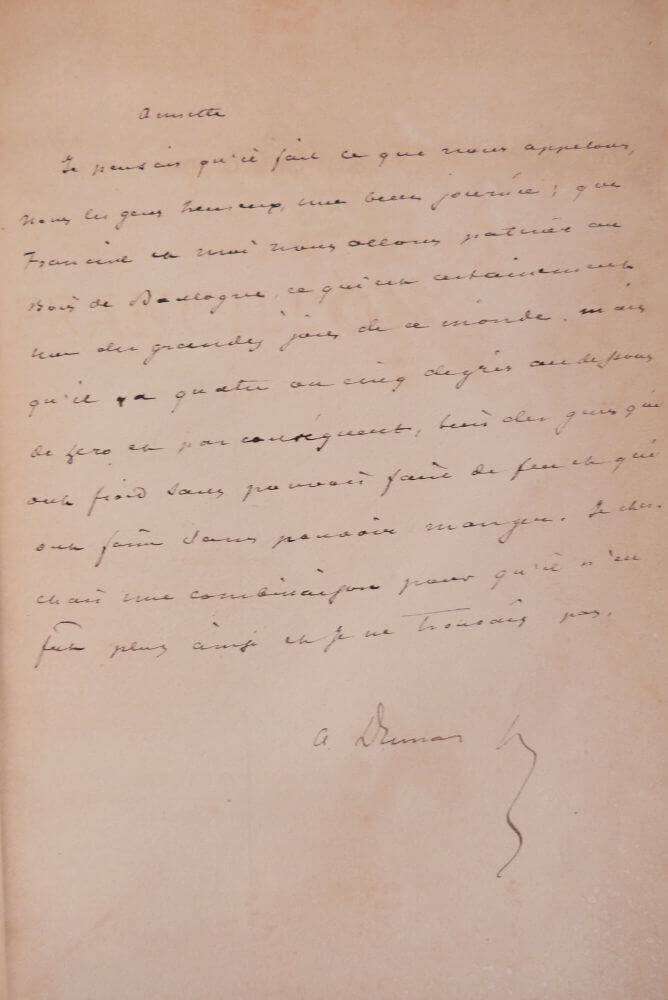 Annette
Je pensais qu'il fait ce que nous appelons,
nous les gens heureux, une belle journée; que
Francine et moi nous allons patiner au
Bois de Boulogne, ce qui est certainement
une des grandes joies de ce monde, mais
qu'il y a quatre ou cinq degrés au dessous
de zero et par conséquent, bien des gens qui
ont froid sans pouvoir faire de feu et qui
ont faim sans pouvoir manger. Je cher-
chais une combinaison pour qu'il n'en
fut plus ainsi et je ne trouvais pas.
A Dumas